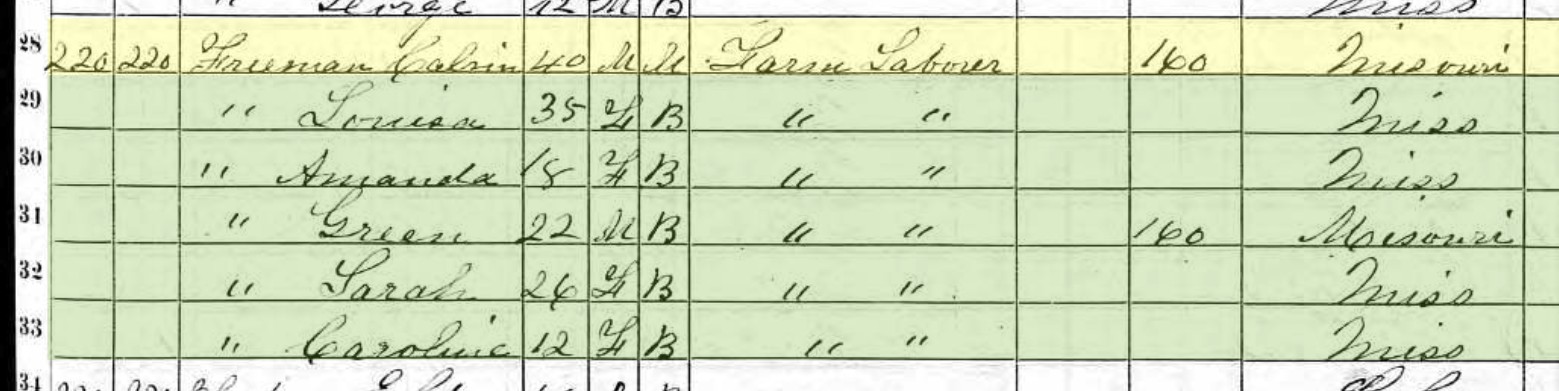 " George 12 M B Miss
28 220 220 Freeman Calvin 40 M M Farm Laborer 160 Missouri
29 " Louisa 35 F B " " Miss
30 " Amanda 18 F B " " Miss
31 " Green 22 M B " " 160 Missouri
32 " Sarah 26 F B " " Miss
33 " Caroline 12 F B " " Miss
34